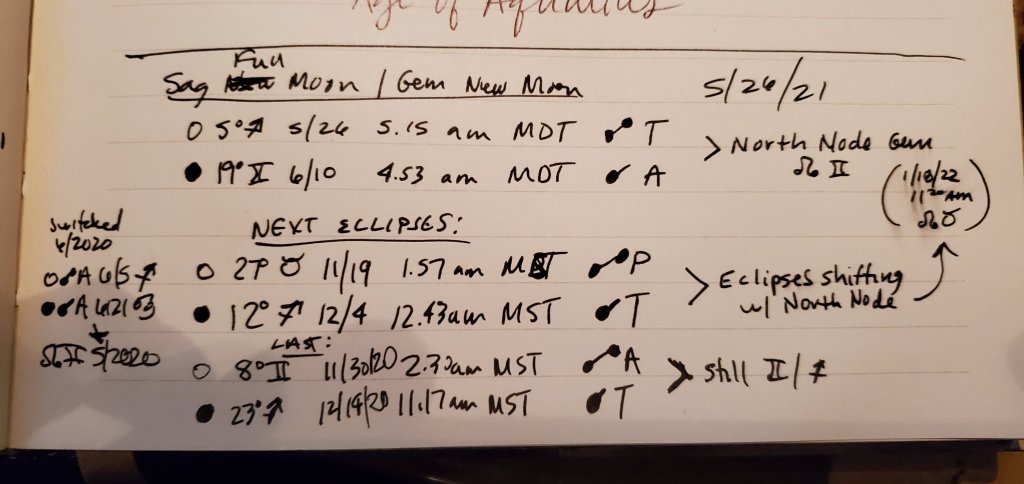 Age of Aquarius
Full
Sag Moon / Gem New Moon 5/26/21
○ 5° ♐ 5/26 5.15 am MDT ☍ T > North Node Gem
● 19° ♊ 6/10 4.53 am MDT ☌ A ☊ ♊
(1/18/22
11 AM
☊ ♉)
NEXT ECLIPSES:
switched
○ 27° ♉ 11/19 1.57 am MST ☍ P > Eclipses shifting
● 12° ♐ 12/4 12.43 am MST ☌ T w/ North Node
○ ☍ A 6/5 ♐
☊ ♊ 5/2020
LAST:
○ 8° ♊ 11/30/20 2.30am MST ☍ A > still ♊ / ♐
● 23° ♐ 12/14/20 11.17 am MST ☌ T